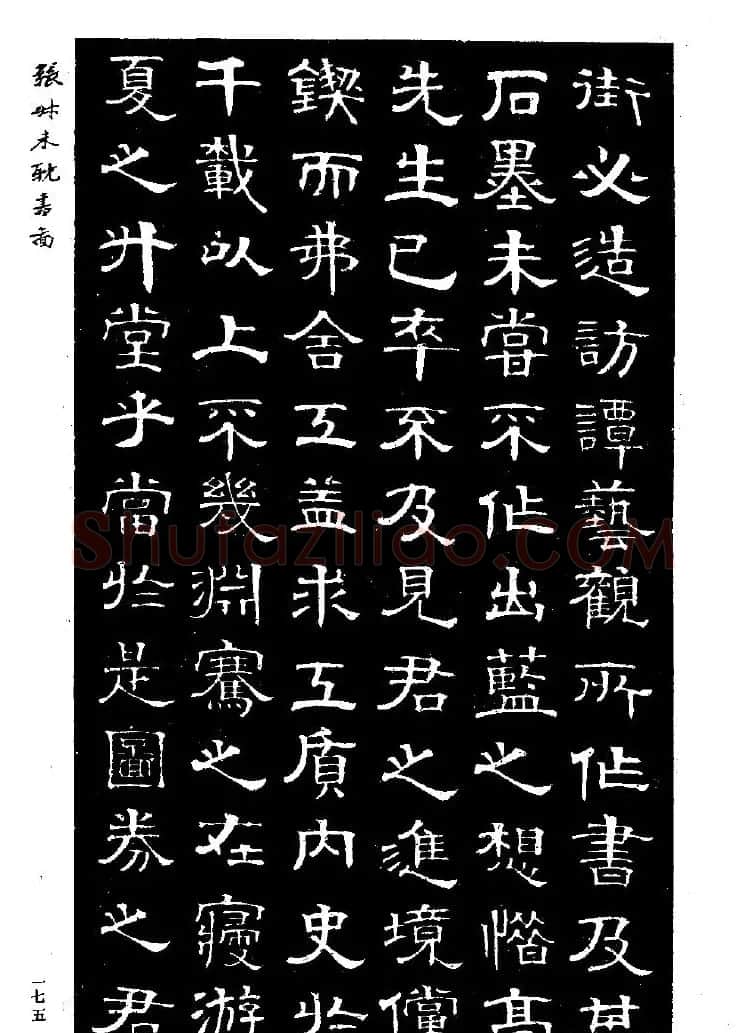 街必造訪譚藝觀所作書及其
石墨未嘗不作出藍之想惜高
先生已卒不及見君之進境儻
鍥而弗舍工益求工質內史於
千載以上不幾淵騫之在寢游
夏之升堂乎當於是圖券之君
張叔未耽書圖
一七五
Shufaziliao.COM